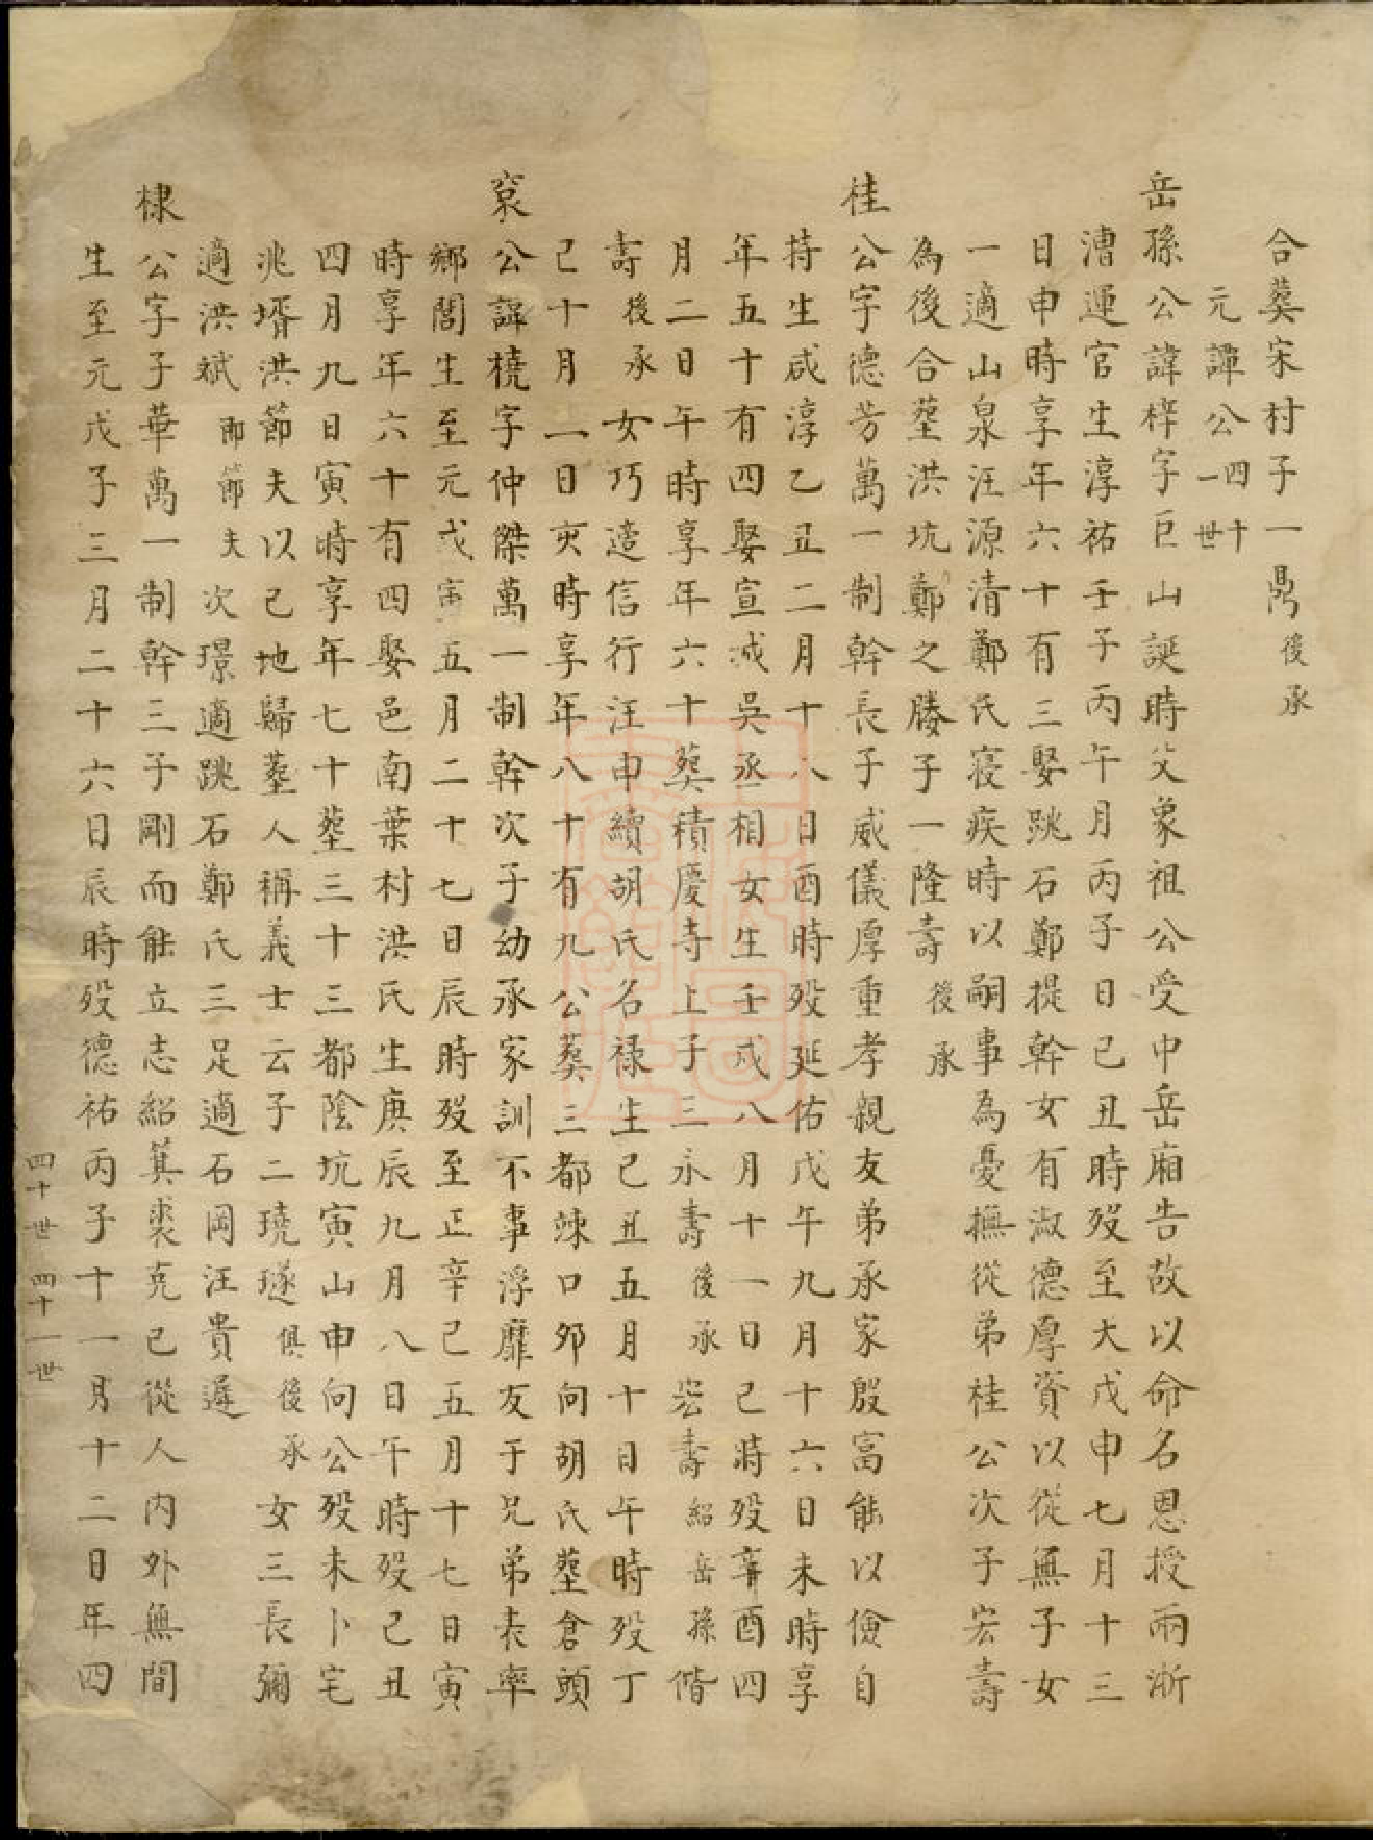 合葬宋村子一鼎後承
元譚公四十一世
岳孫公諱梓字巨山誕時父象祖公受中岳廟告故以命名恩授兩淅
漕運官生淳祐壬子丙午月丙子日己丑時歿至大戊申七月十三
日申時享年六十有三娶跳石鄭提幹女有淑德厚資以從無子女
一適山泉汪源清鄭氏寢疾時以嗣事為憂撫從弟桂公次子宏壽
為後合塟洪坑鄭之勝子一隆壽後承
桂公字德芳萬一制幹長子威儀厚重孝親友弟承家殷富能以儉自
持生咸淳乙丑二月十八日酉時歿延佑戊午九月十六日未時享
年五十有四娶宣城吳丞相女生壬戌八月十一日己時歿辛酉四
月二日午時享年六十葬積慶寺上子三永壽後承宏壽紹岳孫偕
壽後承女巧適信行汪申續胡氏名祿生己丑五月十日午時歿丁
己十月一日亥時享年八十有九公葬三都竦口夘向胡氏塟倉頭
寀公諱橈字仲傑萬一制幹次子幼承家訓不事浮靡友于兄弟表率
鄉閭生至元戊寅五月二十七日辰時歿至正辛己五月十七日寅
時享年六十有四娶邑南葉村洪氏生庚辰九月八日午時歿己丑
四月九日寅時享年七十塟三十三都陰坑寅山申向公歿未卜宅
兆壻洪節夫以己地歸塟人稱義士云子二璄璲俱後承女三長彌
適洪斌即節夫次璟適跳石鄭氏三足適石岡汪貴遲
棣公字子華萬一制幹三子剛而能立志紹箕裘克己從人內外無間
生至元戊子三月二十六日辰時歿德祐丙子十一月十二日年四
四十世 四十一世